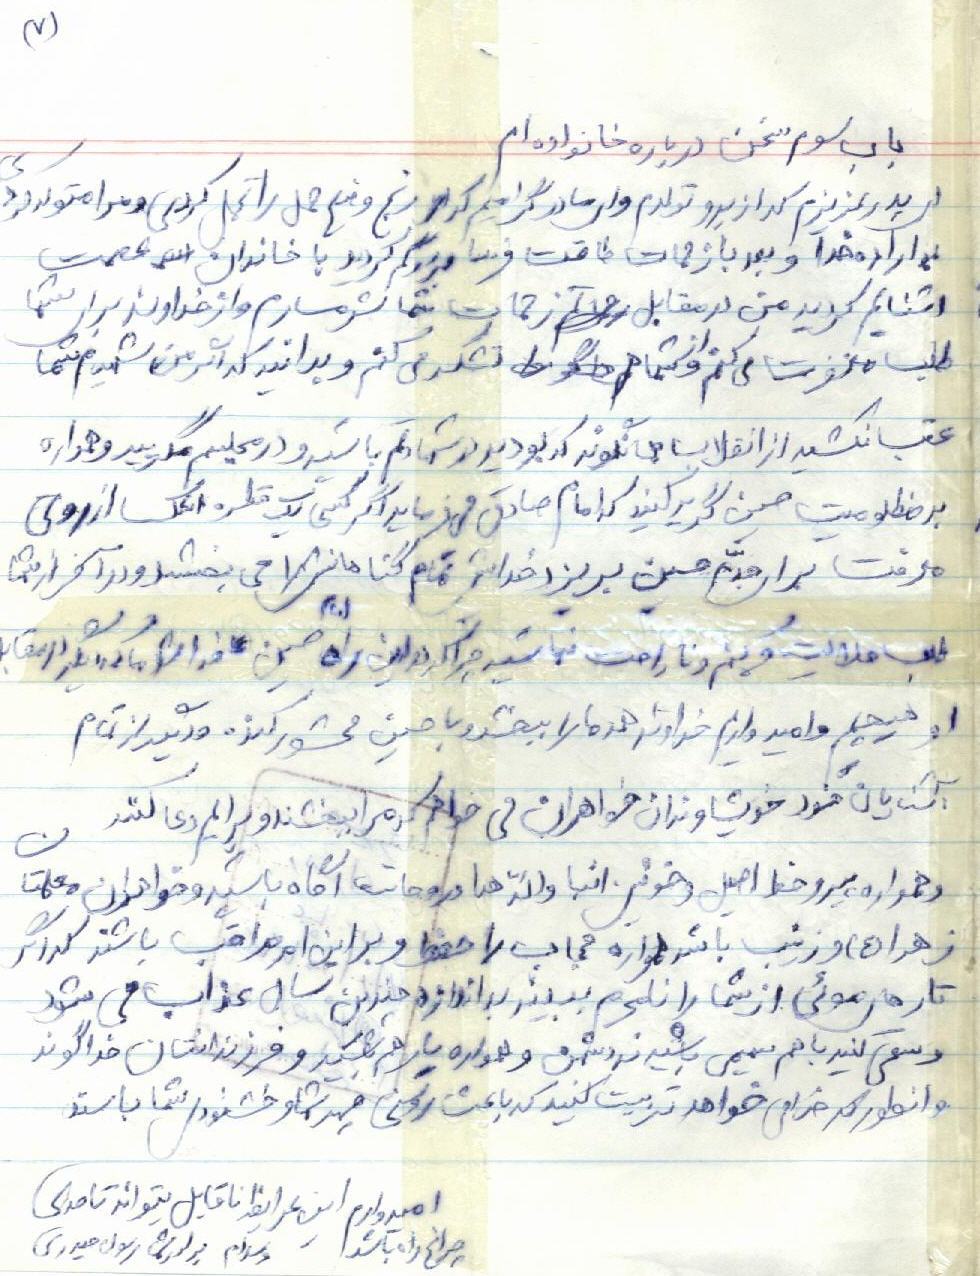 (۷)
باب سوم سخن درباره خانواده ام
ای پدر عزیزم که از بدو تولدم و ای مادر گرامیم که رنج و حمل را تحمل کردی و مرا متولد کردی
به اراده خدا و بعد با زحمات طاقت فرسا بزرگم کردید با خاندان عصمت
آشنایم کردید من در مقابل زحمات شما شرمسارم و از خداوند برای شما
طلب مغفرت می کنم و از شما تشکر می کنم و بدانید که اگر من شهید شدم شما
عقب نکشید از انقلاب همانگونه که بودید در شهادتم باشید و در مجلسم بگریید و همواره
بر مظلومیت حسین گریه کنید که امام صادق می فرماید اگر کسی یک قطره اشک از روی
معرفت برای جدم حسین بریزد خداوند تمام گناهانش را می بخشد و در آخر از شما
طلب حلالیت می کنم و ناراحت نباشید چرا که در این راه حسین فدا شد ما که دیگر در مقابل
او هیچیم و امیدوارم خداوند همه ما را ببخشد و با حسین محشور کند و دیگر از تمام
آشنایان خود خویشاوندان خواهران می خواهم که مرا ببخشند و برایم دعا کنند
و همواره پیرو خط اصیل و خونین انبیا و ائمه هدا و روحانیت آگاه باشید و خواهران
زهرا (س) و زینب باشند همواره حجاب را حفظ و بر این امر مراقب باشند که اگر
تار موئی از شما را نامحرم ببیند به اندازه چندین سال عذاب می شود
و سعی کنید با هم صمیمی باشید نه دشمن و همواره یار هم باشید و فرزندانتان خداگونه
و آنطور که خدا می خواهد تربیت کنید که باعث شما و خشنودی شما باشد
امیدوارم این عرایض ناقابل بتواند تا حدی
چراغ راه باشد والسلام برادر شما رسول حیدری